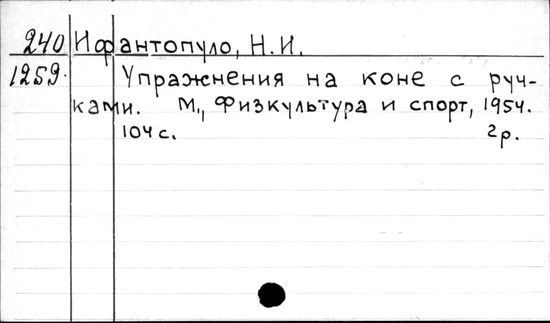 240 Ифантопуло, Н.И.
1259. Упражнения на коне с руч-
ками. М., Физкультура и спорт, 1954.
104 с. 2р.